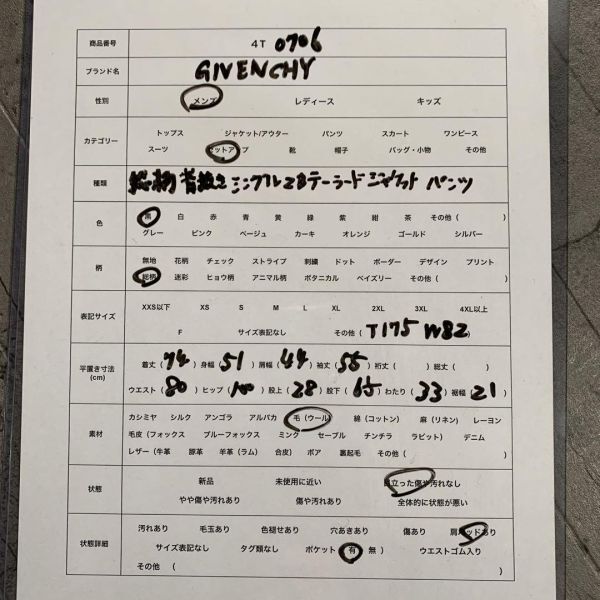 商品番号 4T 0706
ブランド名 GIVENCHY
性別 メンズ レディース キッズ
カテゴリー トップス ジャケット/アウター パンツ スカート ワンピース
スーツ セットアップ 靴 帽子 バッグ・小物 その他
種類 総柄 背抜き シングル2Bテーラードジャケット パンツ
色 黒 白 赤 青 黄 緑 紫 紺 茶 その他 ( )
グレー ピンク ベージュ カーキ オレンジ ゴールド シルバー
柄 無地 花柄 チェック ストライプ 刺繍 ドット ボーダー デザイン プリント
総柄 迷彩 ヒョウ柄 アニマル柄 ボタニカル ペイズリー その他 ( )
表記サイズ XXS以下 XS S M L XL 2XL 3XL 4XL以上
F サイズ表記なし その他 ( T175 W82
平置き寸法 (cm) 着丈 ( 74 ) 身幅 ( 51 ) 肩幅 ( 44 ) 袖丈 ( 55 ) 裄丈 ( ) 総丈 ( )
ウエスト ( 80 ) ヒップ ( 100 ) 股上 ( 28 ) 股下 ( 65 ) わたり ( 33 ) 裾幅 ( 21 )
素材 カシミヤ シルク アンゴラ アルパカ 毛 (ウール) 綿 (コットン) 麻 (リネン) レーヨン
毛皮 (フォックス ブルーフォックス ミンク セーブル チンチラ ラビット) デニム
レザー (牛革 豚革 羊革 (ラム) 合皮) ボア 裏起毛 その他 ( )
状態 新品 未使用に近い 目立った傷や汚れなし
やや傷や汚れあり 傷や汚れあり 全体的に状態が悪い
状態詳細 汚れあり 毛玉あり 色褪せあり 穴あきあり 傷あり 肩パッドあり
サイズ表記なし タグ類なし ポケット ( 有 無 ) ウエストゴム入り
その他 ( )